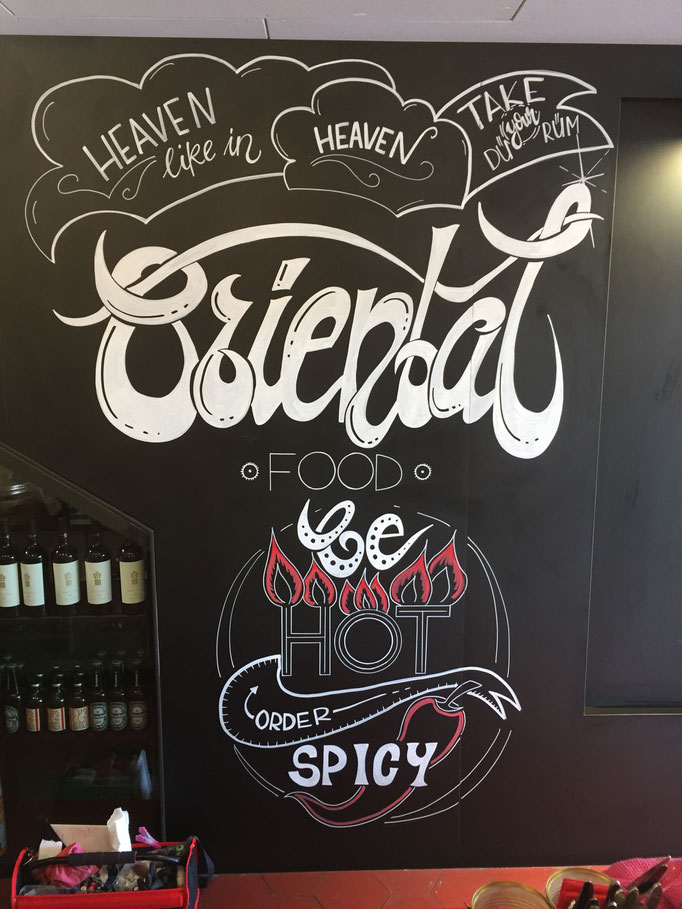 HEAVEN
like in
HEAVEN
TAKE
your
DÜRÜM
Oriental
FOOD
Be
HOT
ORDER
SPICY